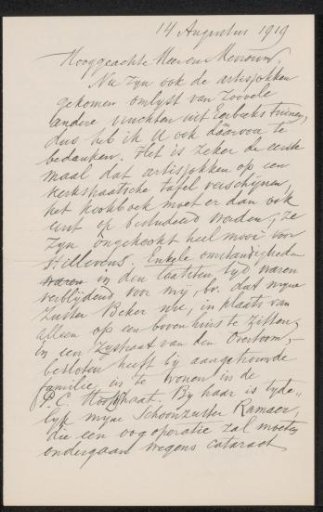 14 Augustus 1919
Hooggeachte Heer en Mevrouw,
Nu zyn ook de artisjokken
gekomen omlyst van zoovele
andere vruchten uit
dus heb ik U ook daarvoor te
bedanken. Het is zeker de eerste
maal dat artisjokken op een
Kerkstraatsche tafel verschijnen,
het kookboek moet er dan ook
eerst op bestudeerd worden; ze
zyn ongekookt heel mooi voor
stillevens. Enkele omstandigheden
waren in den laatsten tyd waren
verblydend voor my, bv. dat myn
Zuster Beker nu, in plaats van
alleen op een bovenhuis te zitten,
in een zystraat van den Overtoom,
besloten heeft by aangetrouwde
familie, is te wonen in de
P.C. Hooftstraat. By haar is tyde-
lyk myne Schoonzuster Ramaer,
die een oogoperatie zal moeten
ondergaan wegens cataract